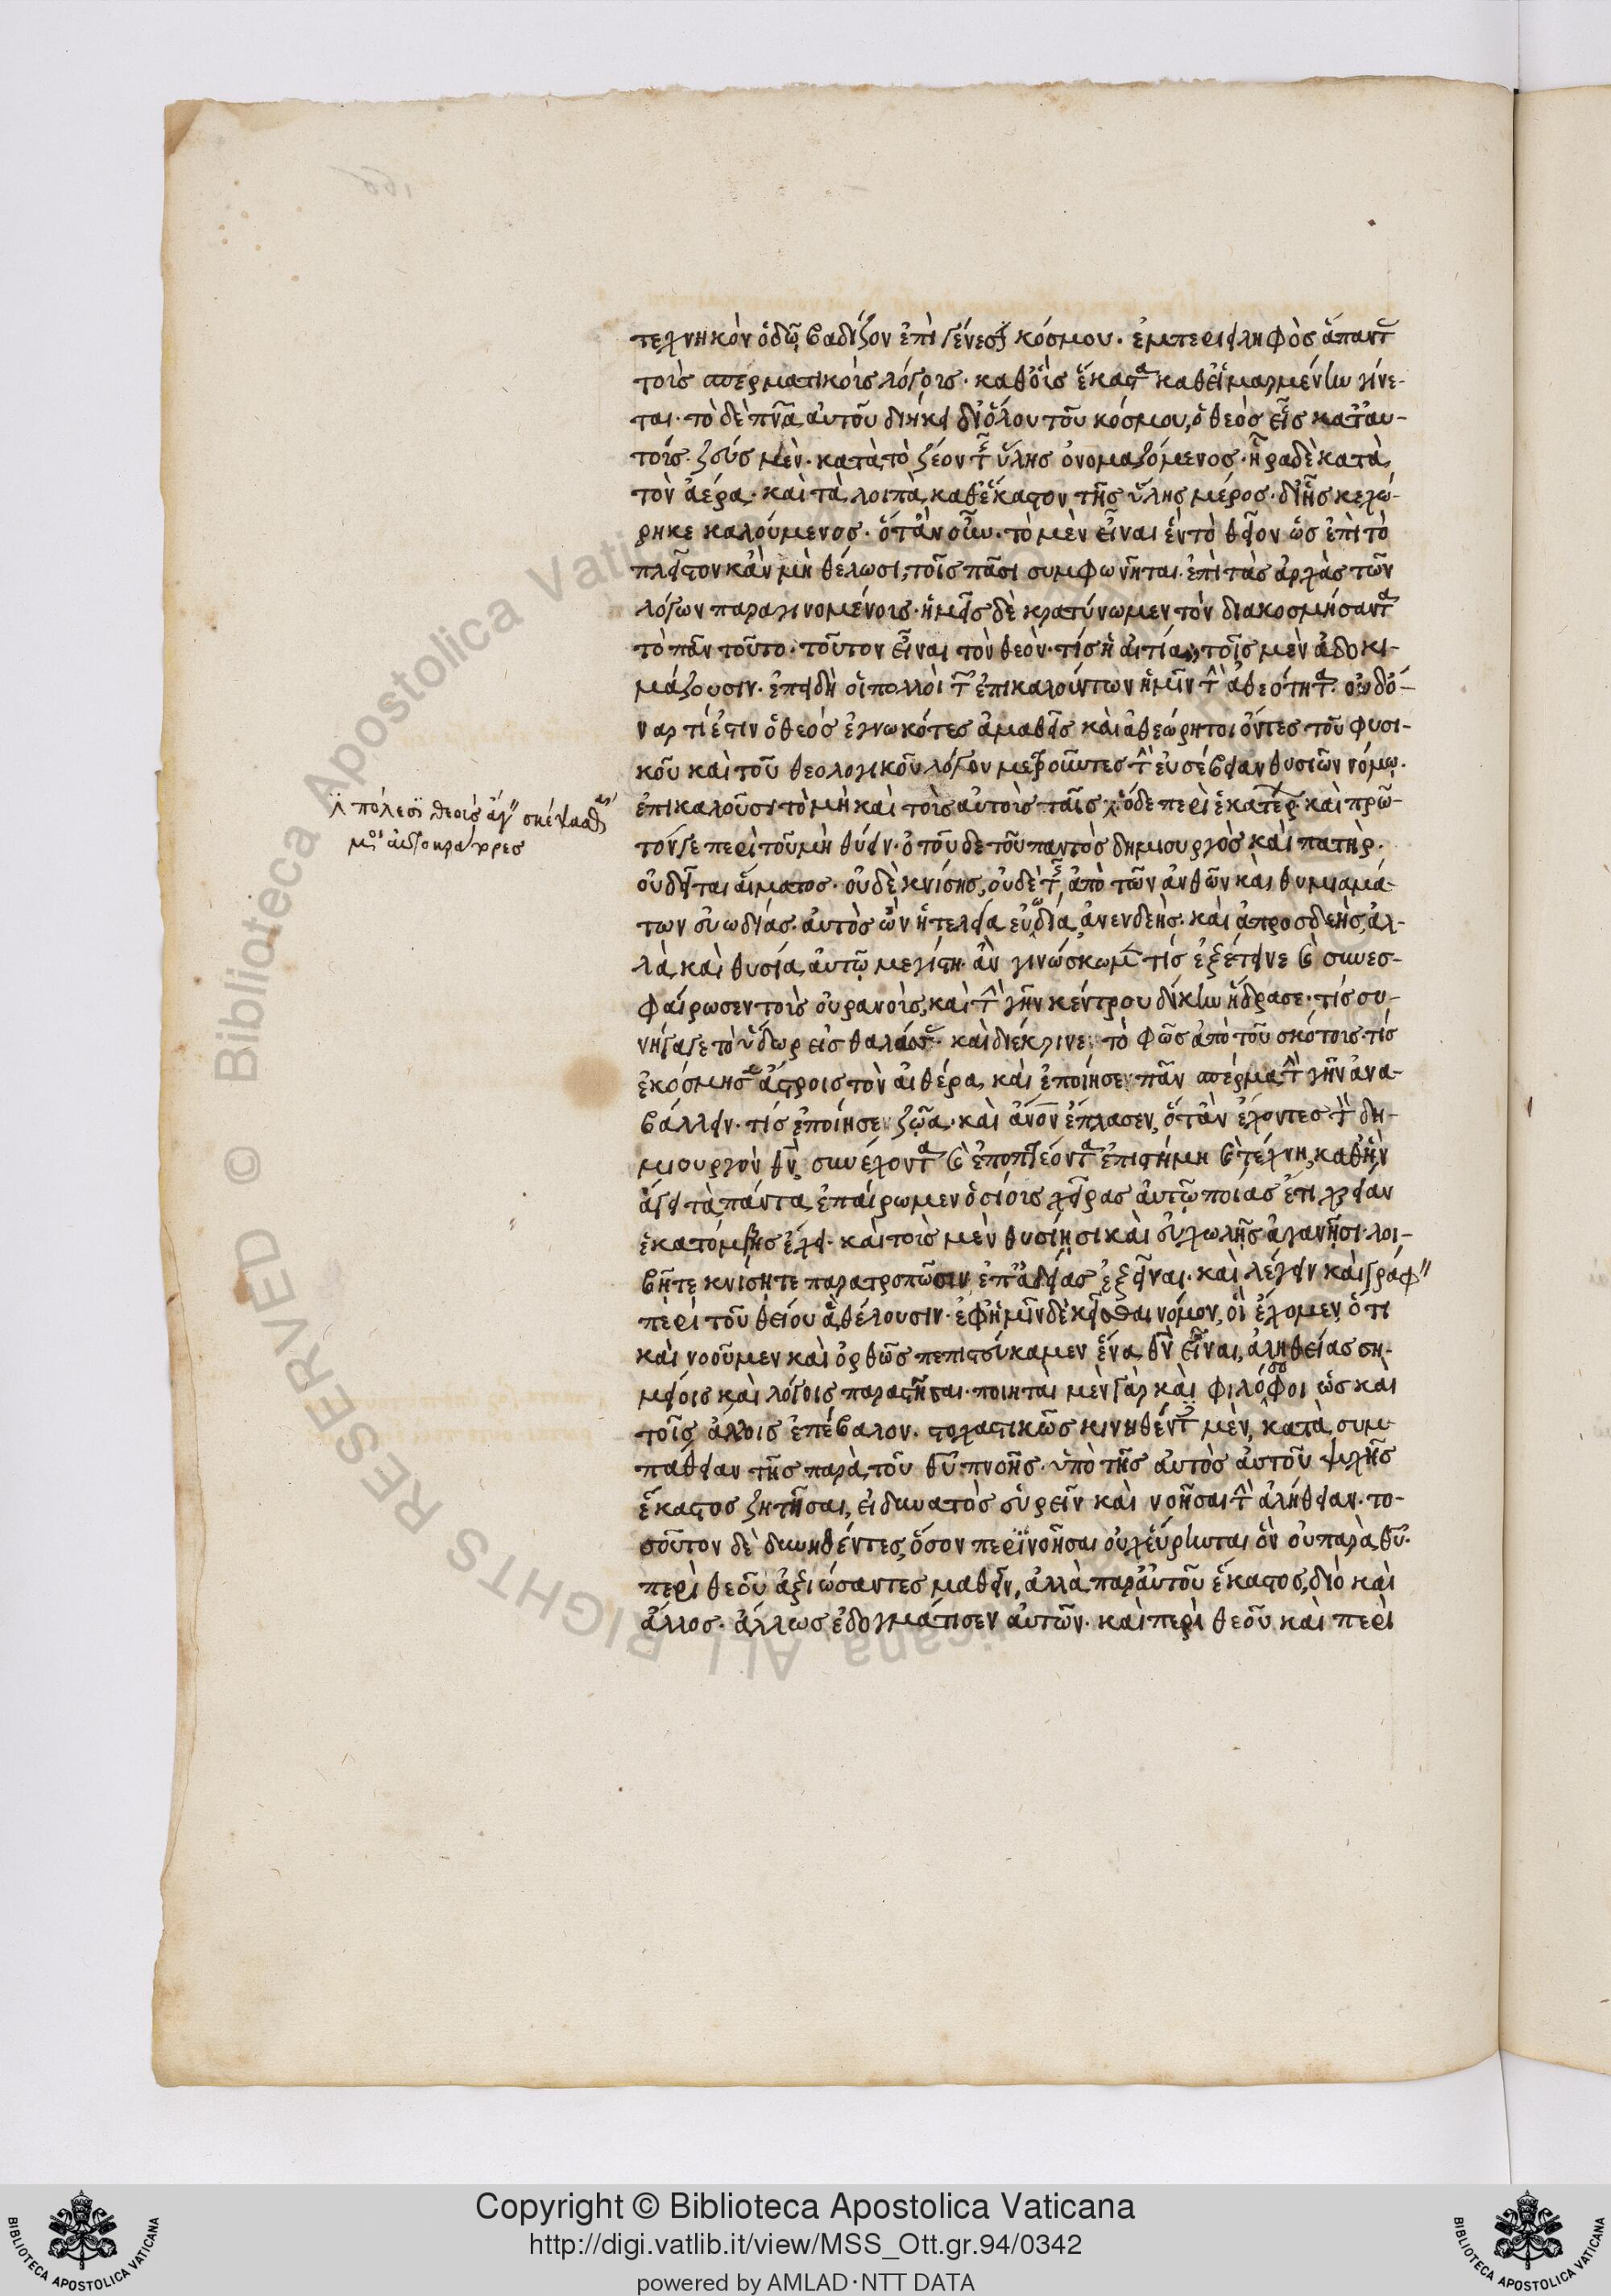 τεχνηκὸν ὁδῷ βαδίζον ἐπὶ γένεσει κόσμου. ἐμπεριειληφὸς ἅπαντ
τοὶς σπερματικοὶς λόγοις. καθ' οἷς ἕκαστα καθ' εἱμαρμένην γίνε-
ται. τὸ δὲ πνα αὐτοῦ διήκει δι' ὅλου τοῦ κόσμου, ὁ θεὸς εἷς κατ' αυ-
τοὶς. ζεὺς μὲν. κατὰ τὸ ζέον τῆς ὕλης ὀνομαζόμενος. ἥρα δὲ κατὰ
τὸν ἀέρα. καὶ τὰ λοιπὰ καθ' ἕκαστον τῆς ὕλης μέρος. δι' ἧς κεχώ-
ρηκε καλούμενος. ὅτ' ἂν οὖν. τὸ μὲν εἶναι ἓν τὸ θεῖον ὡς ἐπὶ τὸ
πλεῖστον κἂν μὴ θέλωσι, τοῖς πᾶσι συμφωνῆται. ἐπὶ τὰς ἀρχὰς τῶν
λόγων παραγινομένοις. ἡμεῖς δὲ κρατύνωμεν τὸν διακοσμήσαντα
τὸ πᾶν τοῦτο. τοῦτον εἶναι τὸν θεὸν. τίς ἡ αἰτία, τοῖς μὲν ἀδοκι-
μάζουσιν. ἐπειδὴ οἱ πολλοὶ τῶν ἐπικαλούντων ἡμῖν τὴν ἀθεότητα. οὐδ' ό-
ναρ τί ἐστιν ὁ θεός ἐγνωκότες ἀμαθεῖς καὶ ἀθεώρητοι ὄντες τοῦ φυσι-
κοῦ καὶ τοῦ θεολογικοῦ λόγου μετροῦντες τὴν εὐσέβειαν θυσιῶν νόμῳ.
ἐπικαλοῦσι τὸ μὴ καὶ τοὶς αὐτοὶς ταῖς ὁ δὲ περὶ ἑκατέρ καὶ πρῶ-
τόν γε περὶ τοῦ μὴ θύειν. ὁ τοῦδε τοῦ παντὸς δημιουργὸς καὶ πατὴρ.
οὐ δεῖται αἵματος. οὐδὲ κνίσης, οὐδὲ τῆς ἀπὸ τῶν ἀνθῶν καὶ θυμιαμά-
των εὐωδίας. αὐτὸς ὢν ἡ τελεία εὐωδία, ἀνενδεὴς. καὶ ἀπροσδεὴς, ἀλ-
λὰ καὶ θυσία αὐτῷ μεγίστη. ἂν γινώσκωμεν τίς ἐξέτεινε καὶ συνεσ-
φαίρωσεν τοὶς οὐρανοὶς, καὶ τὴν γῆν κέντρου δίκην ἥδρασε. τίς συ-
νήγαγε τὸ ὕδωρ εἰς θαλάσσας. καὶ διέκρινε τὸ φῶς ἀπὸ τοῦ σκότοις. τίς
ἐκόσμησεν ἄστροις τὸν αἰθέρα, καὶ ἐποίησε πᾶν σπέρμα τὴν γῆν ἀνα-
βάλλειν. τίς ἐποίησε ζῷα. καὶ ἀνον ἔπλασεν, ὅτ' ἂν ἔχοντες τὸν δη-
μιουργὸν θν, συνέχοντα καὶ ἐποπτεύοντα ἐπιστήμη καὶ τέχνη, καθ' ἣν
ἄγει τὰ πάντα, ἐπαίρωμεν ὁσίοις χεῖρας αὐτῷ ποίας ἔτι χρείαν
ἑκατόμβης ἔχει. καὶ τοὶς μὲν θυσίῃσι καὶ εὐχωλῇς ἀγανῇσι. λοι-
βῇτε κνίσῃτε παρατροπῶσιν ἐπ' ἀδείας ἐξεῖναι. καὶ λέγειν καὶ γράφ
περὶ τοῦ θείου ἃ θέλουσιν. ἐφ' ἡμῖν δὲ κεῖσθαι νόμον, οἳ ἔχομεν, ὅτι
καὶ νοοῦμεν καὶ ὀρθῶς πεπιστεύκαμεν ἕνα θν εἶναι, ἀληθείας ση-
μείοις καὶ λόγοις παραστῆσαι. ποιηταὶ μὲν γὰρ καὶ φιλόσοφοι ὡς καὶ
τοῖς ἄλλοις ἐπέβαλον. στοχαστικῶς κινηθέντες μὲν, κατὰ συμ
πάθειαν τῆς παρὰ τοῦ θυ πνοῆς. ὑπὸ τῆς αὐτὸς αὐτοῦ ψυχῆς
ἕκαστος ζητῆσαι, εἰ δυνατὸς εὑρεῖν καὶ νοῆσαι τὴν ἀλήθειαν. το-
σοῦτον δὲ δυνηθέντες, ὅσον περϊνοῆσαι οὐχ εὕρηνται ὂν οὐ παρὰ θυ.
περὶ θεοῦ ἀξιώσαντες μαθεῖν, ἀλλὰ παρ' αὐτοῦ ἕκαστος, διὸ καὶ
ἄλλος. ἄλλως ἐδογμάτισεν αὐτῶν. καὶ περὶ θεοῦ καὶ περὶ
πόλεσϊ θεοὶς ἄγ σκέψασθ
μοι αὐτοκράτορες
Copyright © Biblioteca Apostolica Vaticana
http://digi.vatlib.it/view/MSS_Ott.gr.94/0342
powered by AMLAD·NTT DATA
BIBLIOTECA APOSTOLICA VATICANA
BIBLIOTECA APOSTOLICA VATICANA